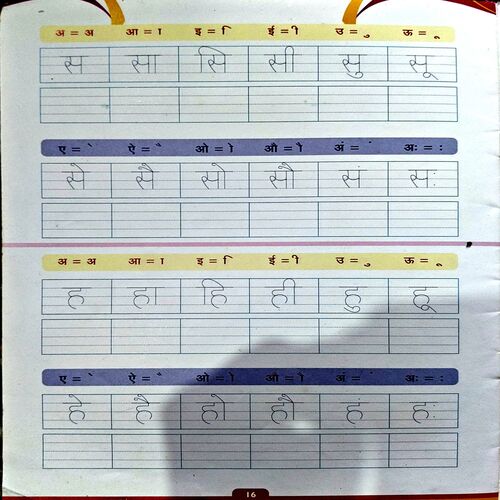 अ = अ आ = ा इ = ि ई = ी उ = ु ऊ = ू
स सा सि सी सु सू
ए = े ऐ = ै ओ = ो औ = ौ अं = ं अः = ः
से सै सो सौ सं सः
अ = अ आ = ा इ = ि ई = ी उ = ु ऊ = ू
ह हा हि ही हु हू
ए = े ऐ = ै ओ = ो औ = ौ अं = ं अः = ः
हे है हो हौ हं हः
16